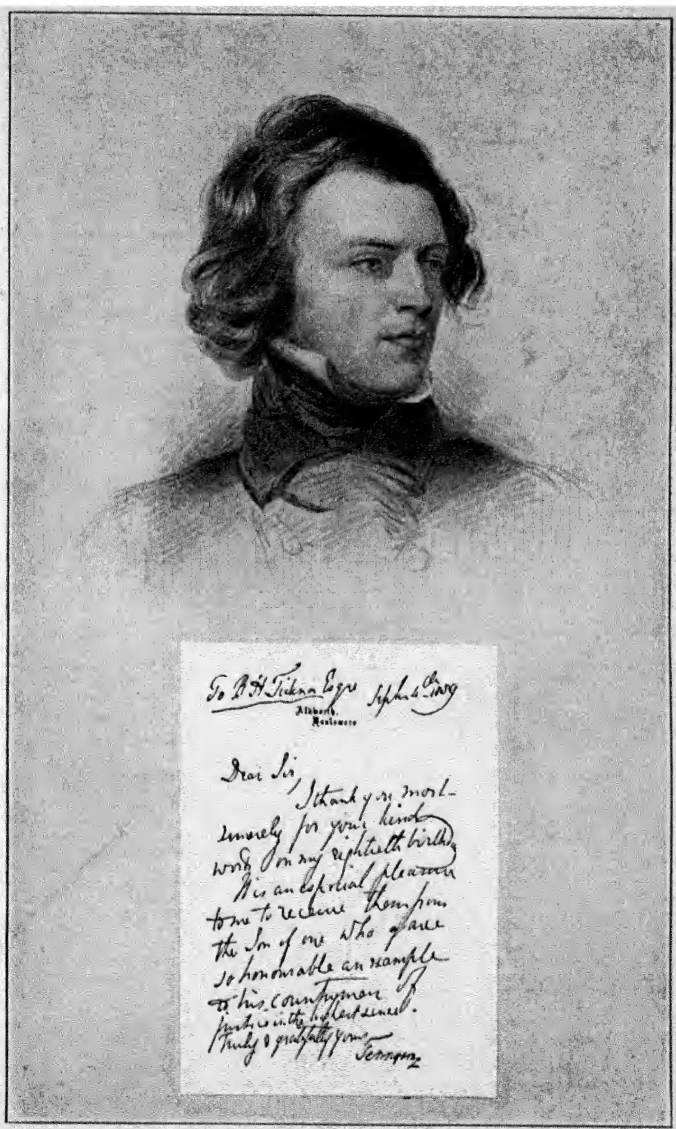 To B H Ticknor Esqre Septr 4th 1889
Aldworth,
Haslemere
Dear Sir,
I thank you most
sincerely for your kind
words on my eightieth birthday
It is an especial pleasure
to me to receive them from
the Son of one who gave
so honourable an example
to his countrymen of
justice in the highest sense.
Truly & gratefully yours
Tennyson